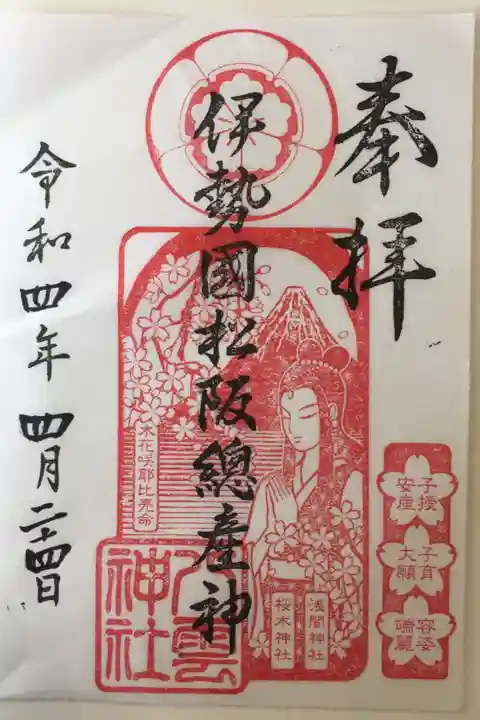 奉拝
伊勢國松阪總産神
木花咲耶比売命
浅間神社
桜木神社
八雲神社
子授
安産
子育
大願
容姿
端麗
令和四年四月二十四日